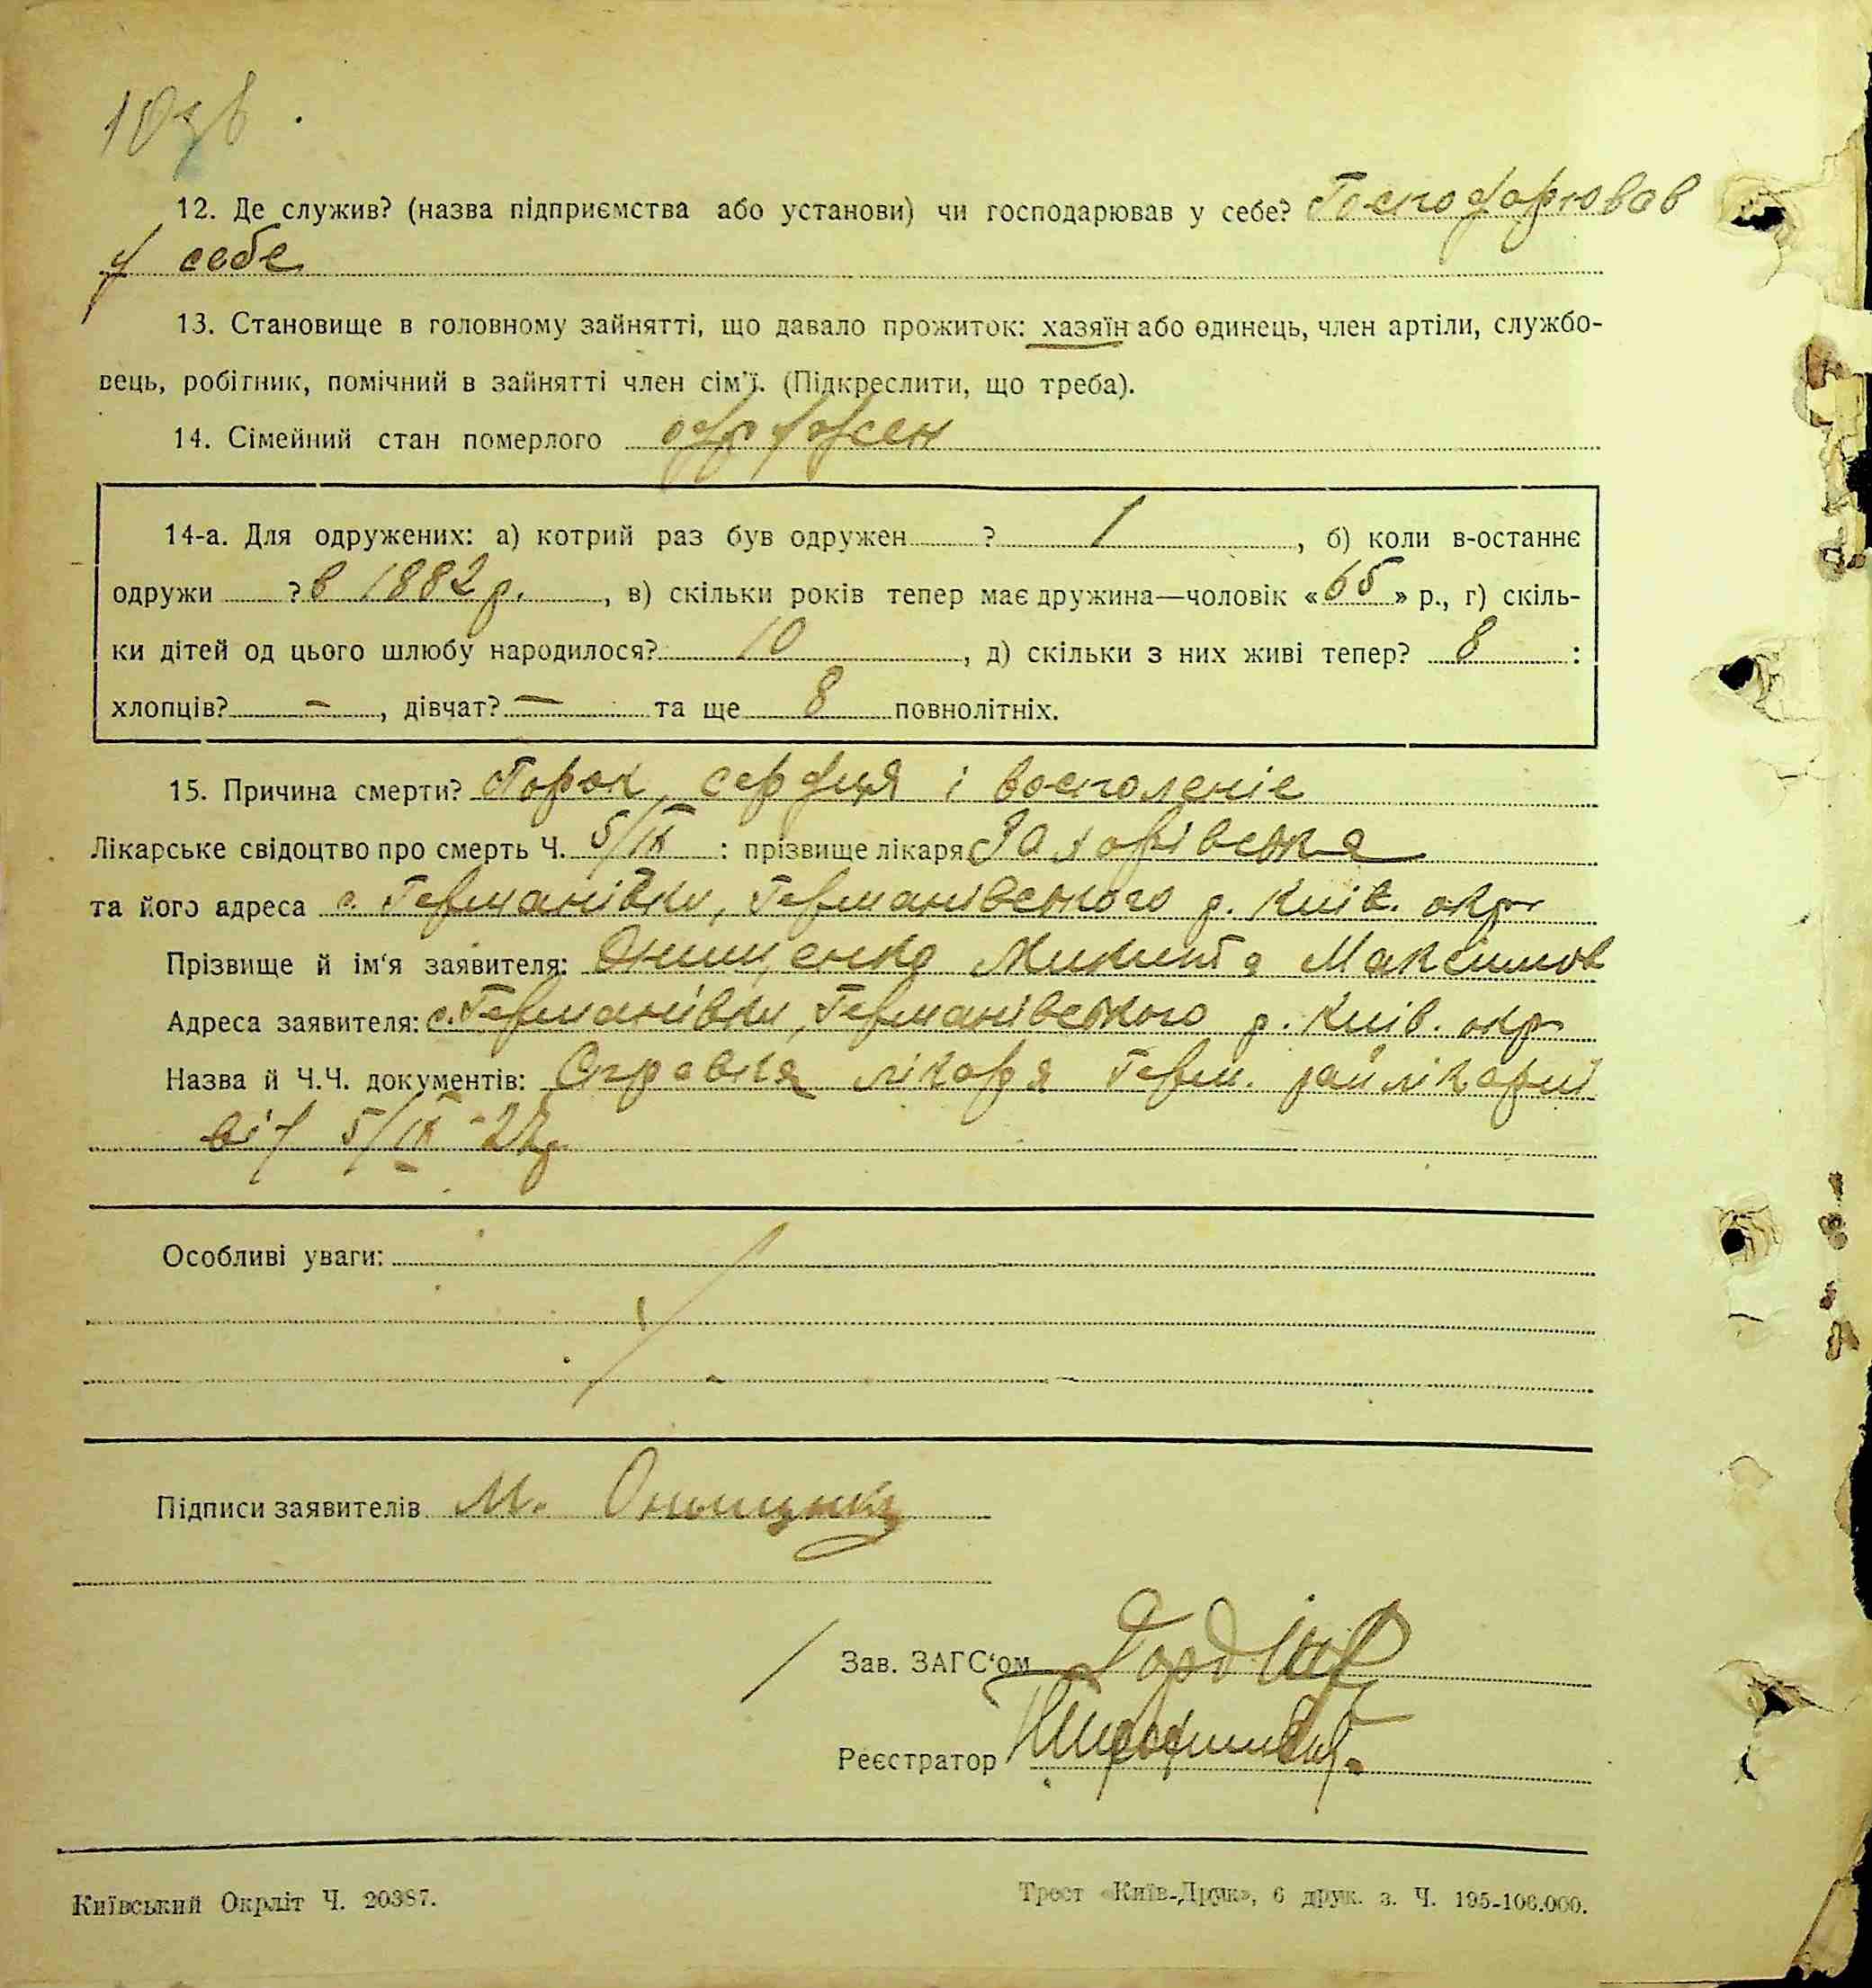 103б.
12. Де служив? (назва підприємства або установи) чи господарював у себе? Господарював
у себе
13. Становище в головному зайнятті, що давало прожиток: хазяїн або одинець, член артіли, службо-
вець, робігник, помічний в зайнятті член сім'ї. (Підкреслити, що треба).
14. Сімейний стан померлого одружен
14-а. Для одружених: а) котрий раз був одружен ? 1, б) коли в-останнє
одружи ? в 1882 р., в) скільки років тепер має дружина—чоловік «65» р., г) скіль-
ки дітей од цього шлюбу народилося? 10, д) скільки з них живі тепер? 8 :
хлопців? –, дівчат? – та ще 8 повнолітніх.
15. Причина смерти? Порок сердця і восполеніє
Лікарське свідоцтво про смерть Ч. 5/IX : прізвище лікаря Захорівська
та його адреса с. Германівки, Германівського р. Київ. окр
Прізвище й ім'я заявителя: Онищенко Микита Максимов
Адреса заявителя: с. Германівки, Германівського р. Київ. окр
Назва й Ч.Ч. документів: Справка лікаря Герм. райлікарні
від 5/IX-27р
Особливі уваги:
Підписи заявителів М. Онищенко
Зав. ЗАГС'ом
Реєстратор
Київський Окрліт Ч. 20387.
Трест «Київ-Друк», 6 друк. з. Ч. 195-106.000.